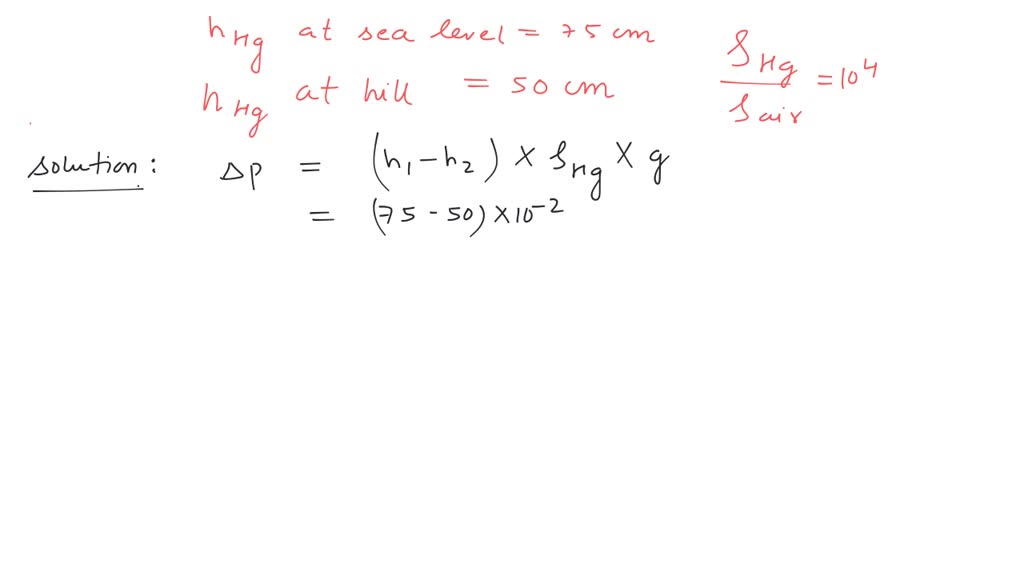 h Hg at sea level = 75 cm
h Hg at hill = 50 cm
ρHg / ρair = 10⁴
solution : Δp = (h₁-h₂) × ρHg × g
= (75-50) × 10⁻²